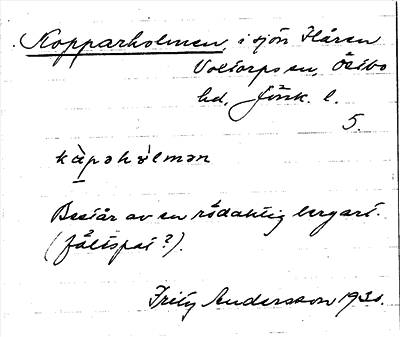 Kopparholmen, i sjön Flåren
Voltorps sn, Östbo
hd, Jönk. l.
5.
kàpəhòlmən
Består av en rödaktig bergart.
(fältspat?).
Fritz Andersson 1930.